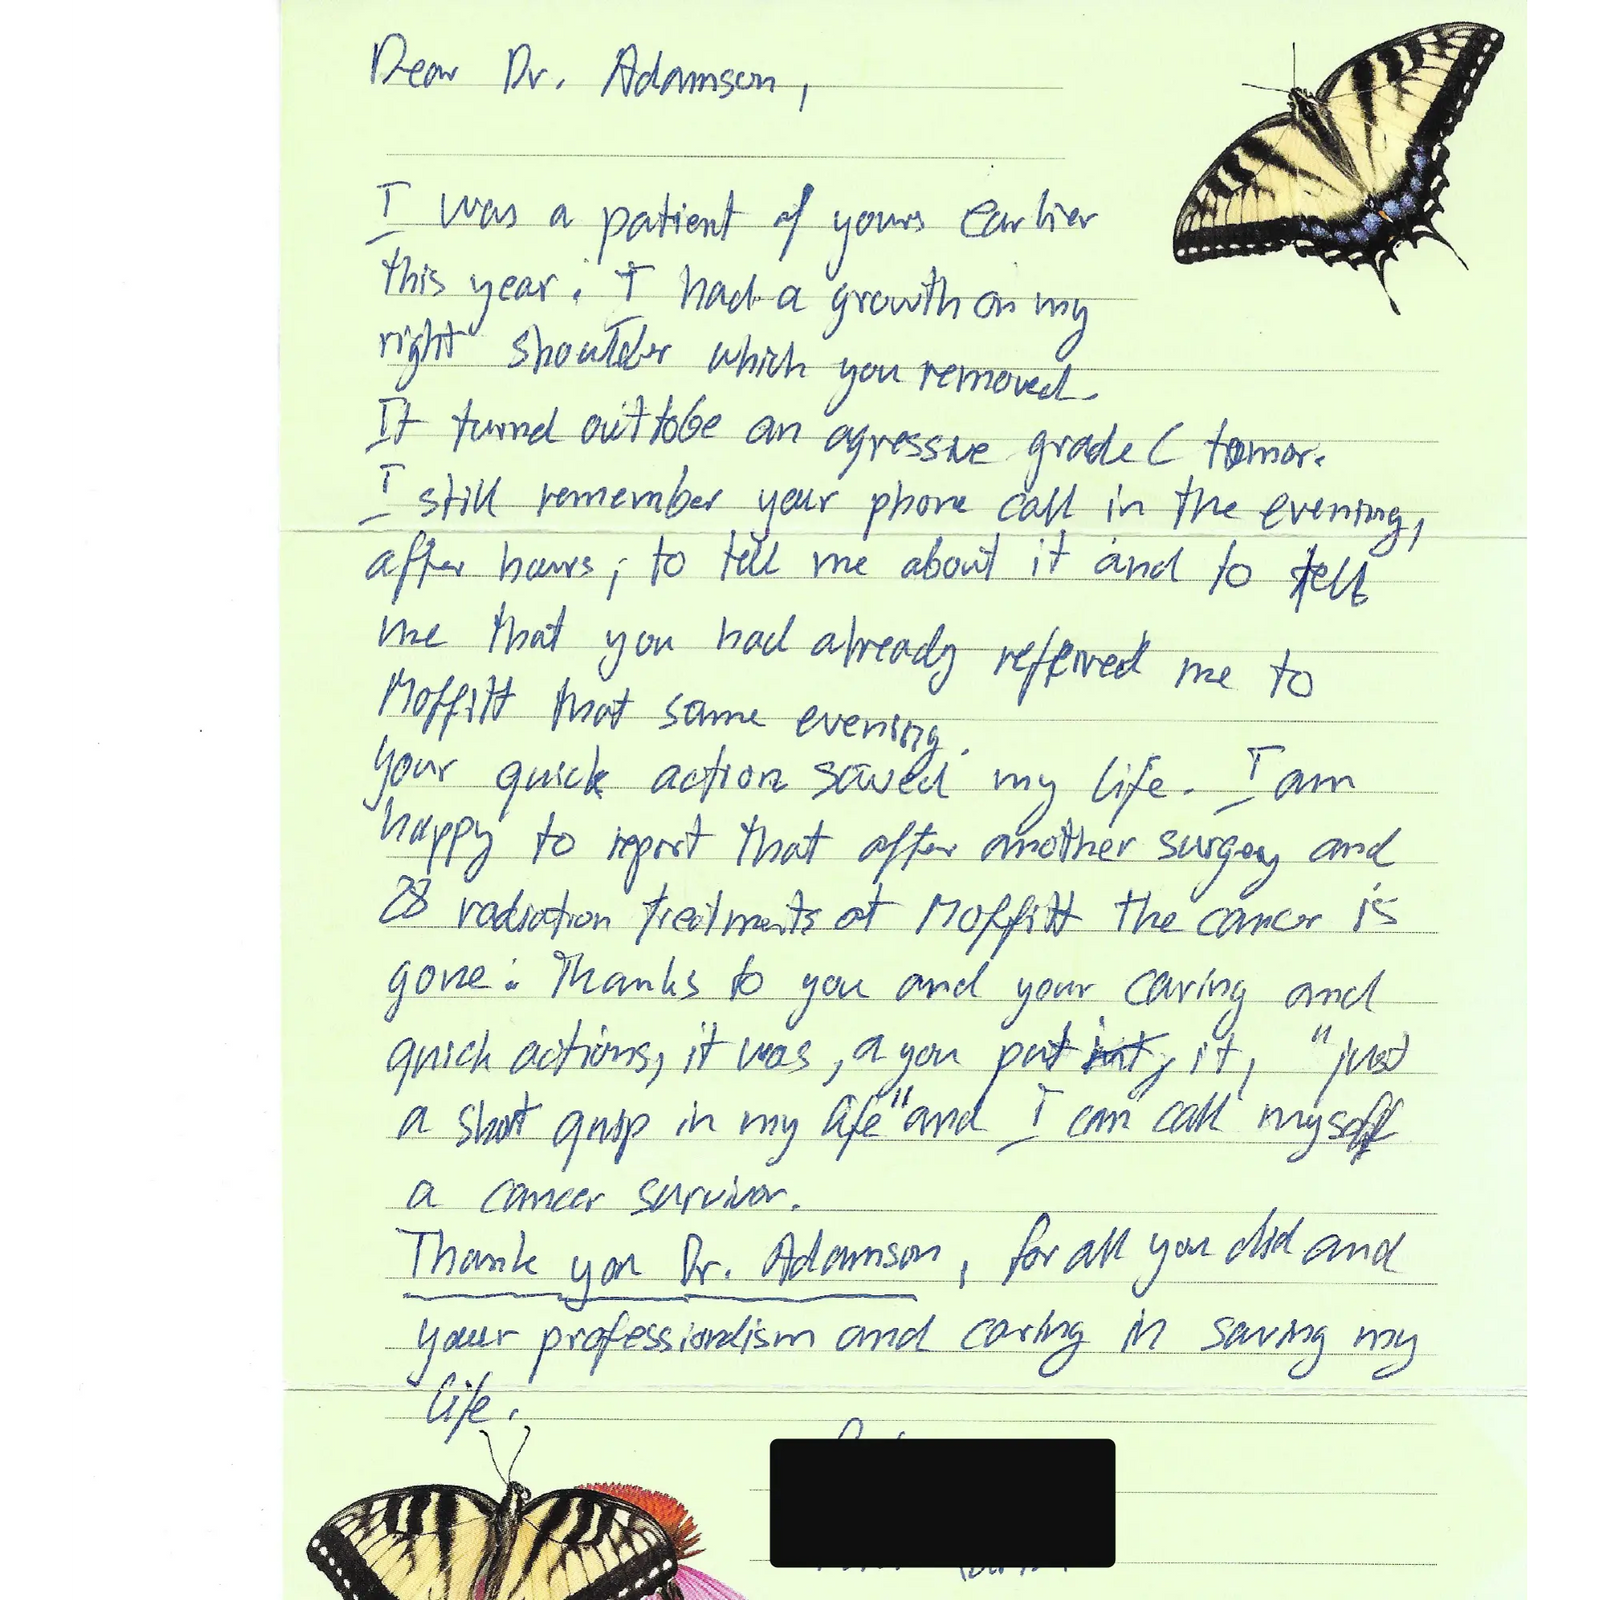 Dear Dr. Adamson,
I was a patient of yours earlier
this year. I had a growth on my
right shoulder which you removed.
It turned out to be an agressive grade C tomor.
I still remember your phone call in the evening,
after hours, to tell me about it and to tell
me that you had already referred me to
Moffitt that same evening.
your quick action saved my life. I am
happy to report that after another surgery and
28 radiation treatments at Moffitt the cancer is
gone. Thanks to you and your caring and
quick actions, it was, a you put it, "just
a short in my life" and I can call myself
a cancer survivor.
Thank you Dr. Adamson, for all you did and
your professionalism and caring in saving my
life.